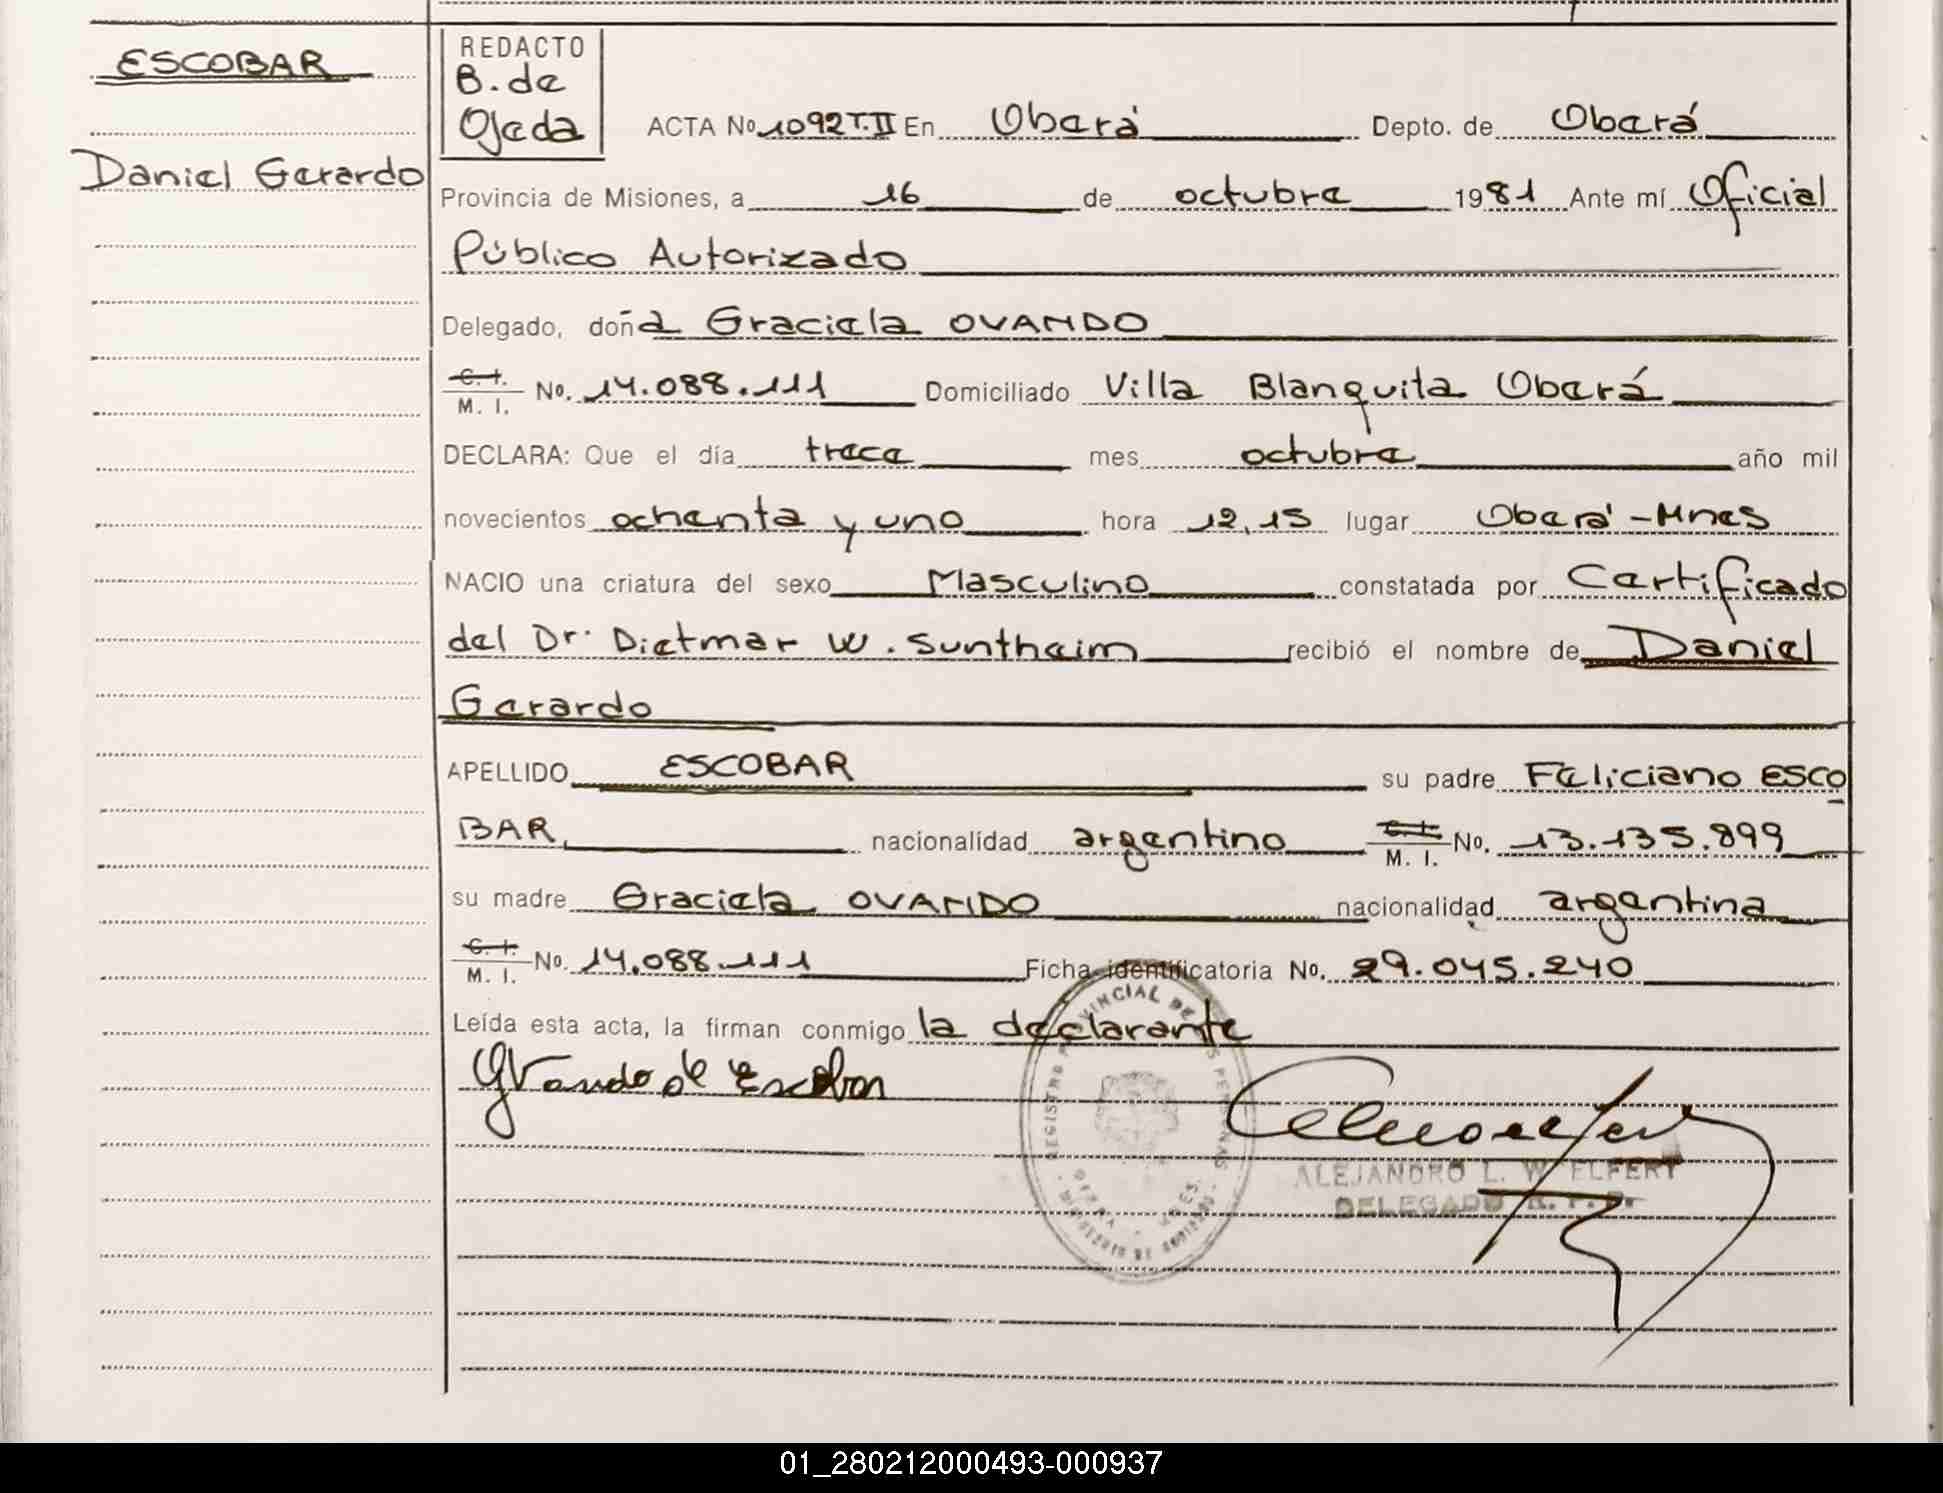 ESCOBAR
Daniel Gerardo
REDACTO
B. de
Ojeda
ACTA No 1092 T.II En Oberá Depto. de Oberá
Provincia de Misiones, a 16 de octubre 1981 Ante mí Oficial
Público Autorizado
Delegado, doña Graciela OVANDO
C. I.
M. I. No. 14.088.111 Domiciliado Villa Blanquita Oberá
DECLARA: Que el día trece mes octubre año mil
novecientos ochenta y uno hora 12,15 lugar Oberá - Mnes
NACIO una criatura del sexo Masculino constatada por Certificado
del Dr. Dietmar W. Suntheim recibió el nombre de Daniel
Gerardo
APELLIDO ESCOBAR su padre Feliciano ESCO
BAR nacionalidad argentino C. I.
M. I. No. 13.135.899
su madre Graciela OVANDO nacionalidad argentina
C. I.
M. I. No. 14.088.111 Ficha identificatoria No. 29.045.240
Leída esta acta, la firman conmigo la declarante
GOvando de Escobar
REGISTRO PROVINCIAL DE LAS PERSONAS
ALEJANDRO L. W. ELFERT
DELEGADO R. P. P.
01_280212000493-000937